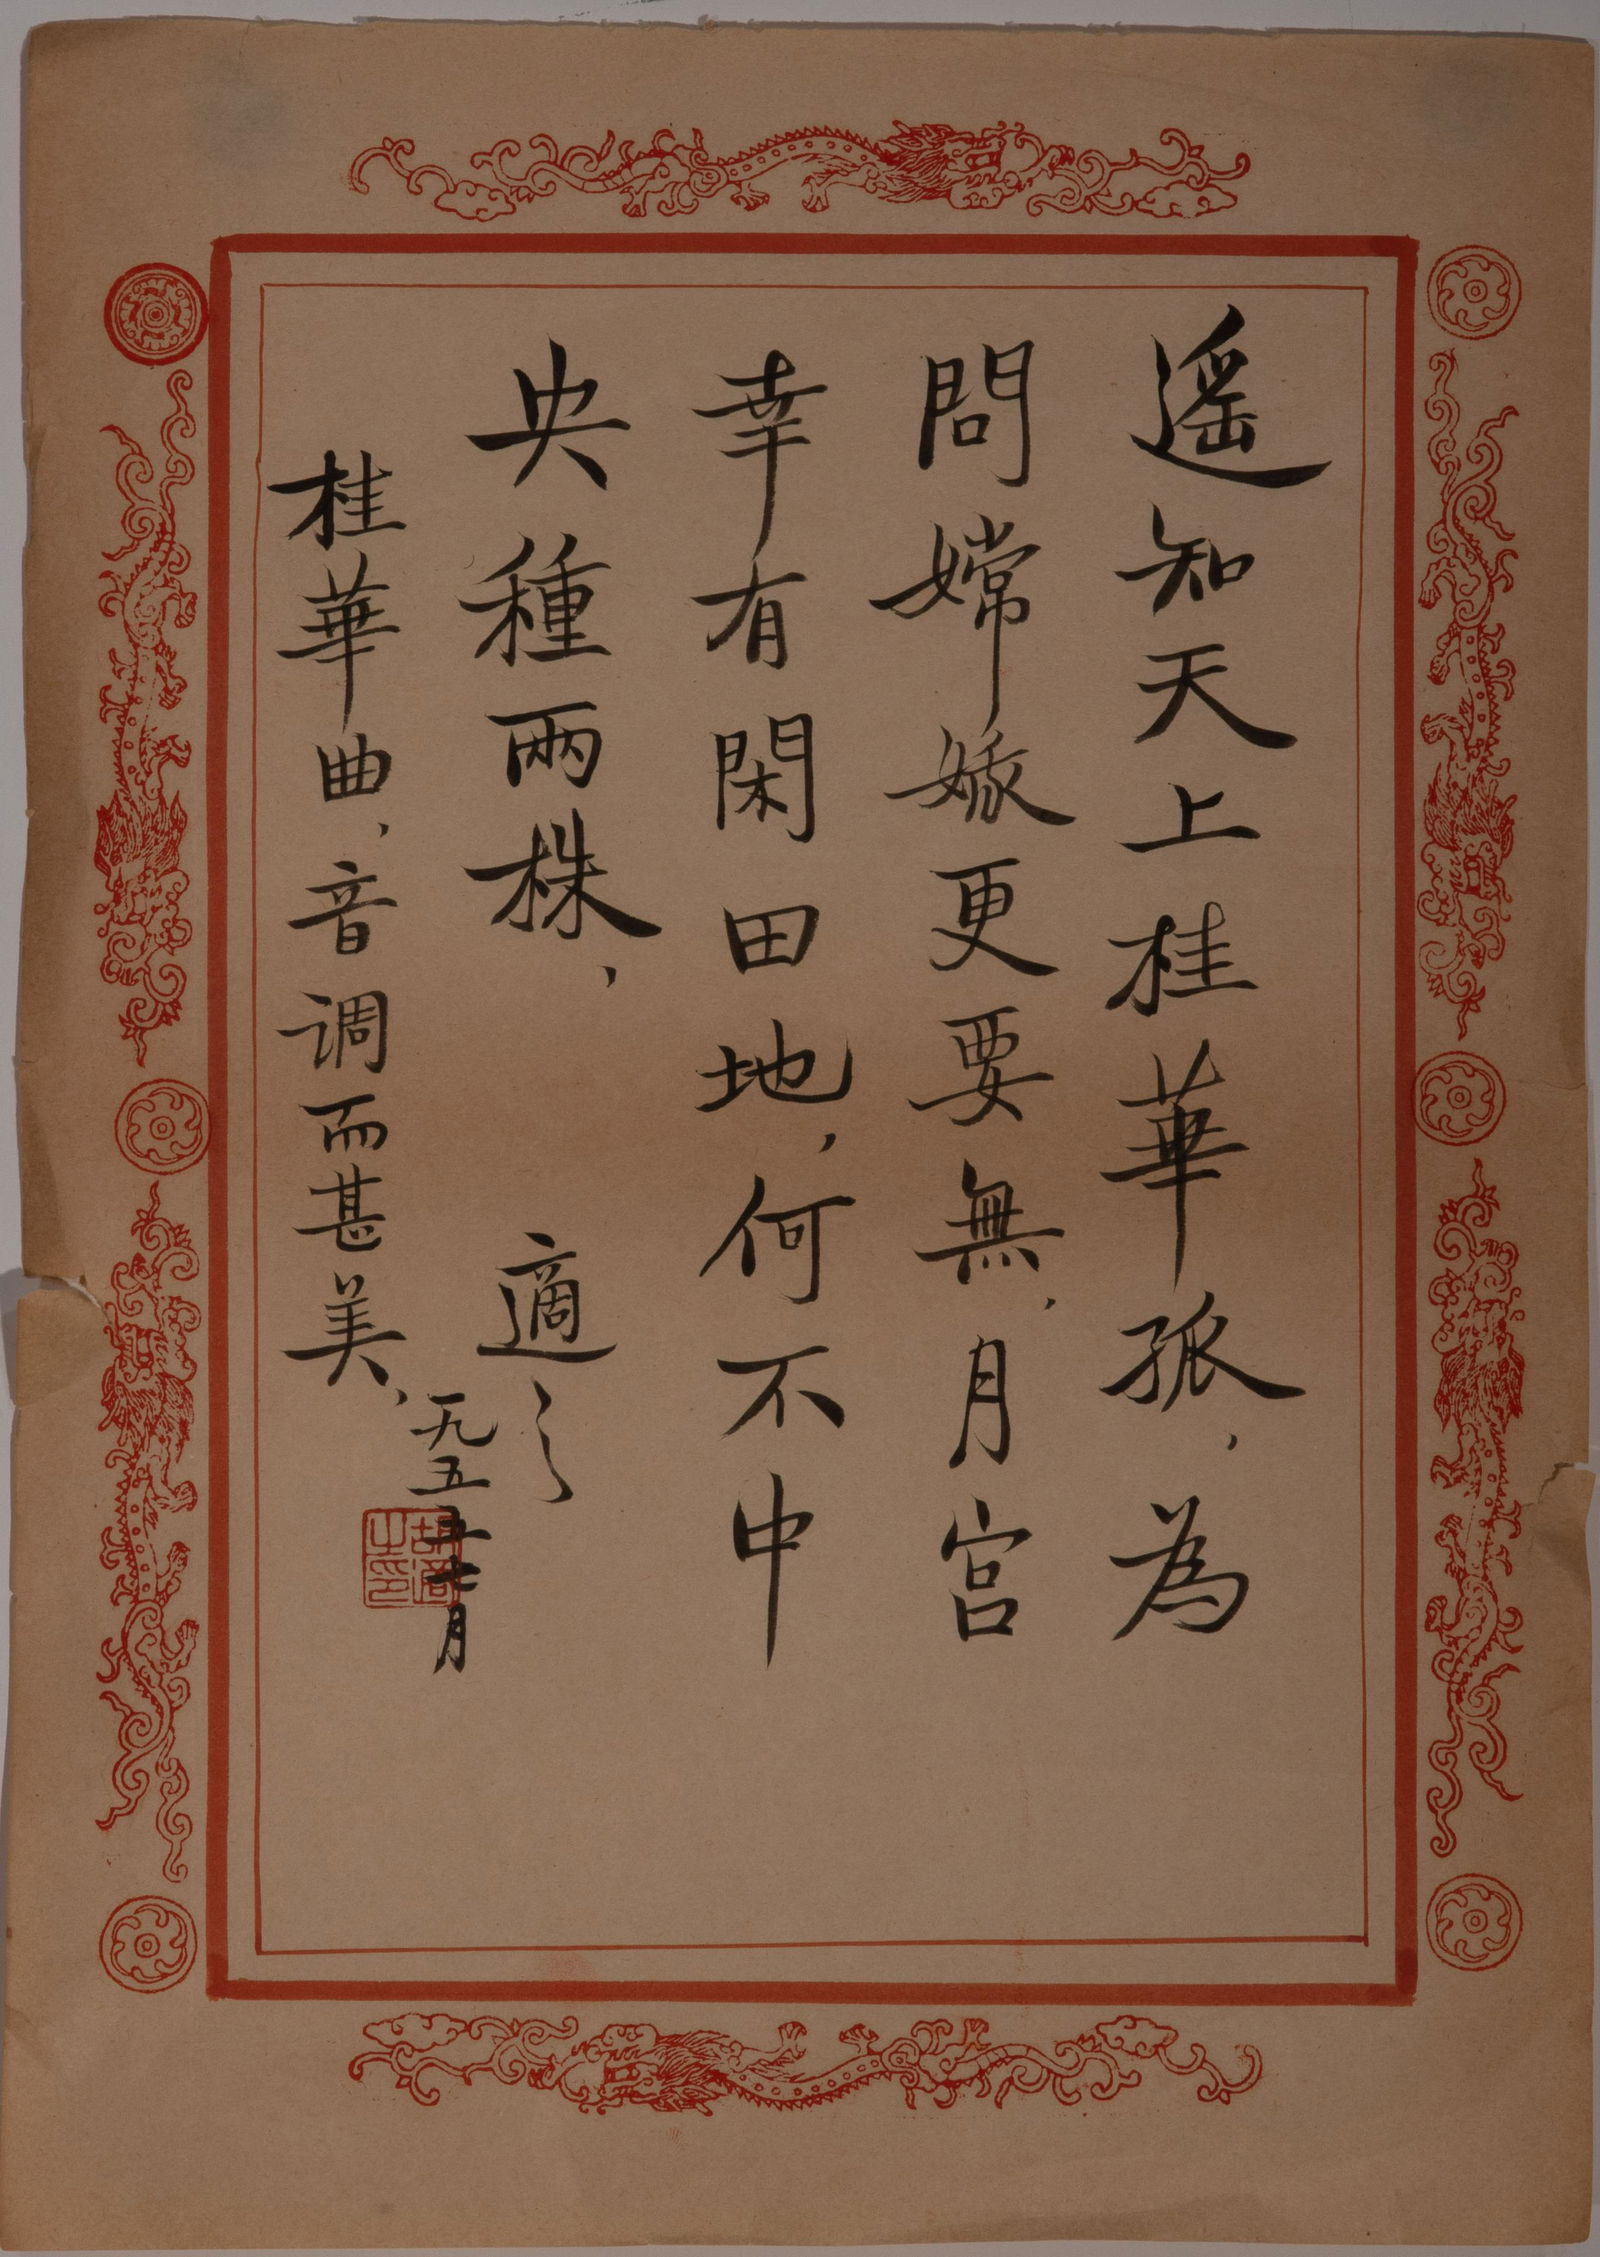 遥知天上桂華孤、為
問嫦娥更要無、月宮
幸有閑田地、何不中
央種兩株、
適之
桂華曲、音調而甚美、
一九五五七月
胡適之印